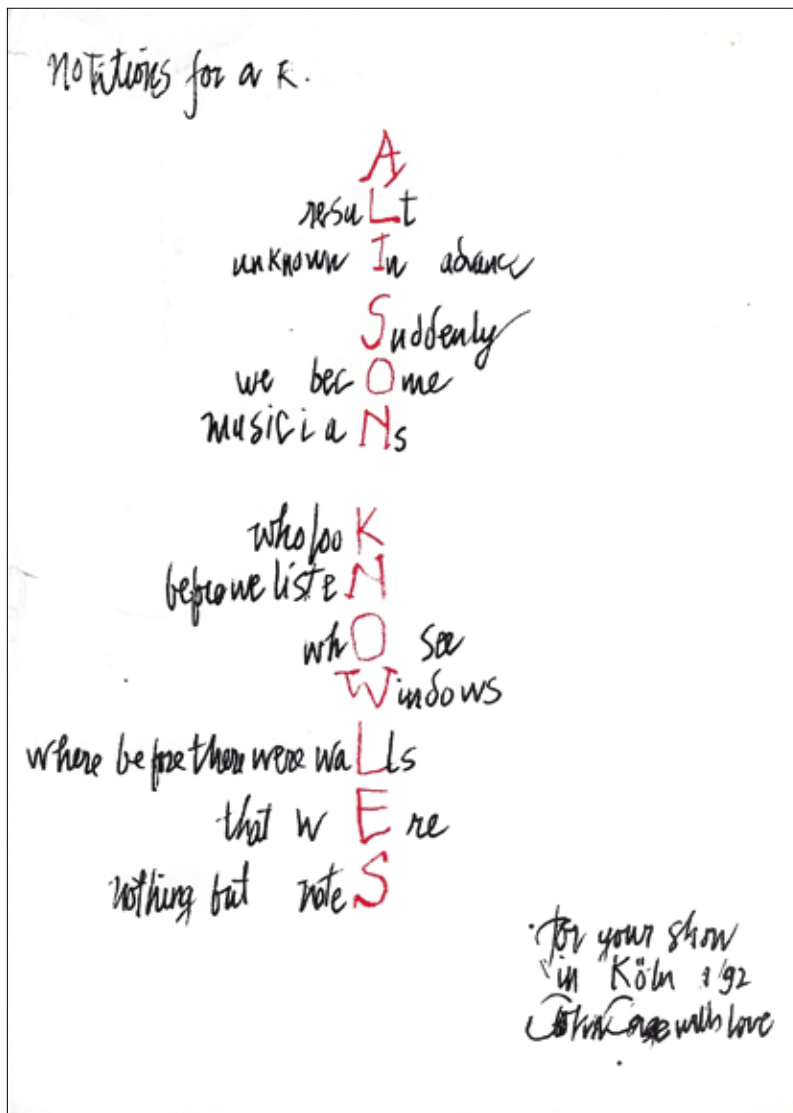 Notitions for a K.
A
resuLt
unknown In advance
Suddenly
we becOme
musiciaNs
who looK
before we listeN
whO see
Windows
where before there were waLls
that wEre
nothing but noteS
for your show
in Köln '92
John Cage with love